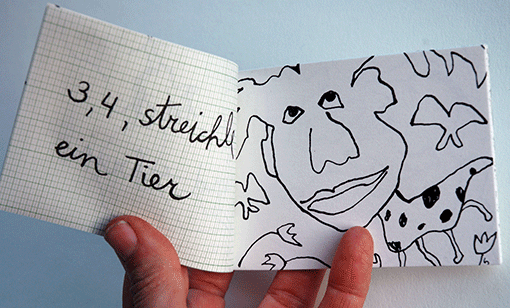 3, 4, streichl
ein Tier